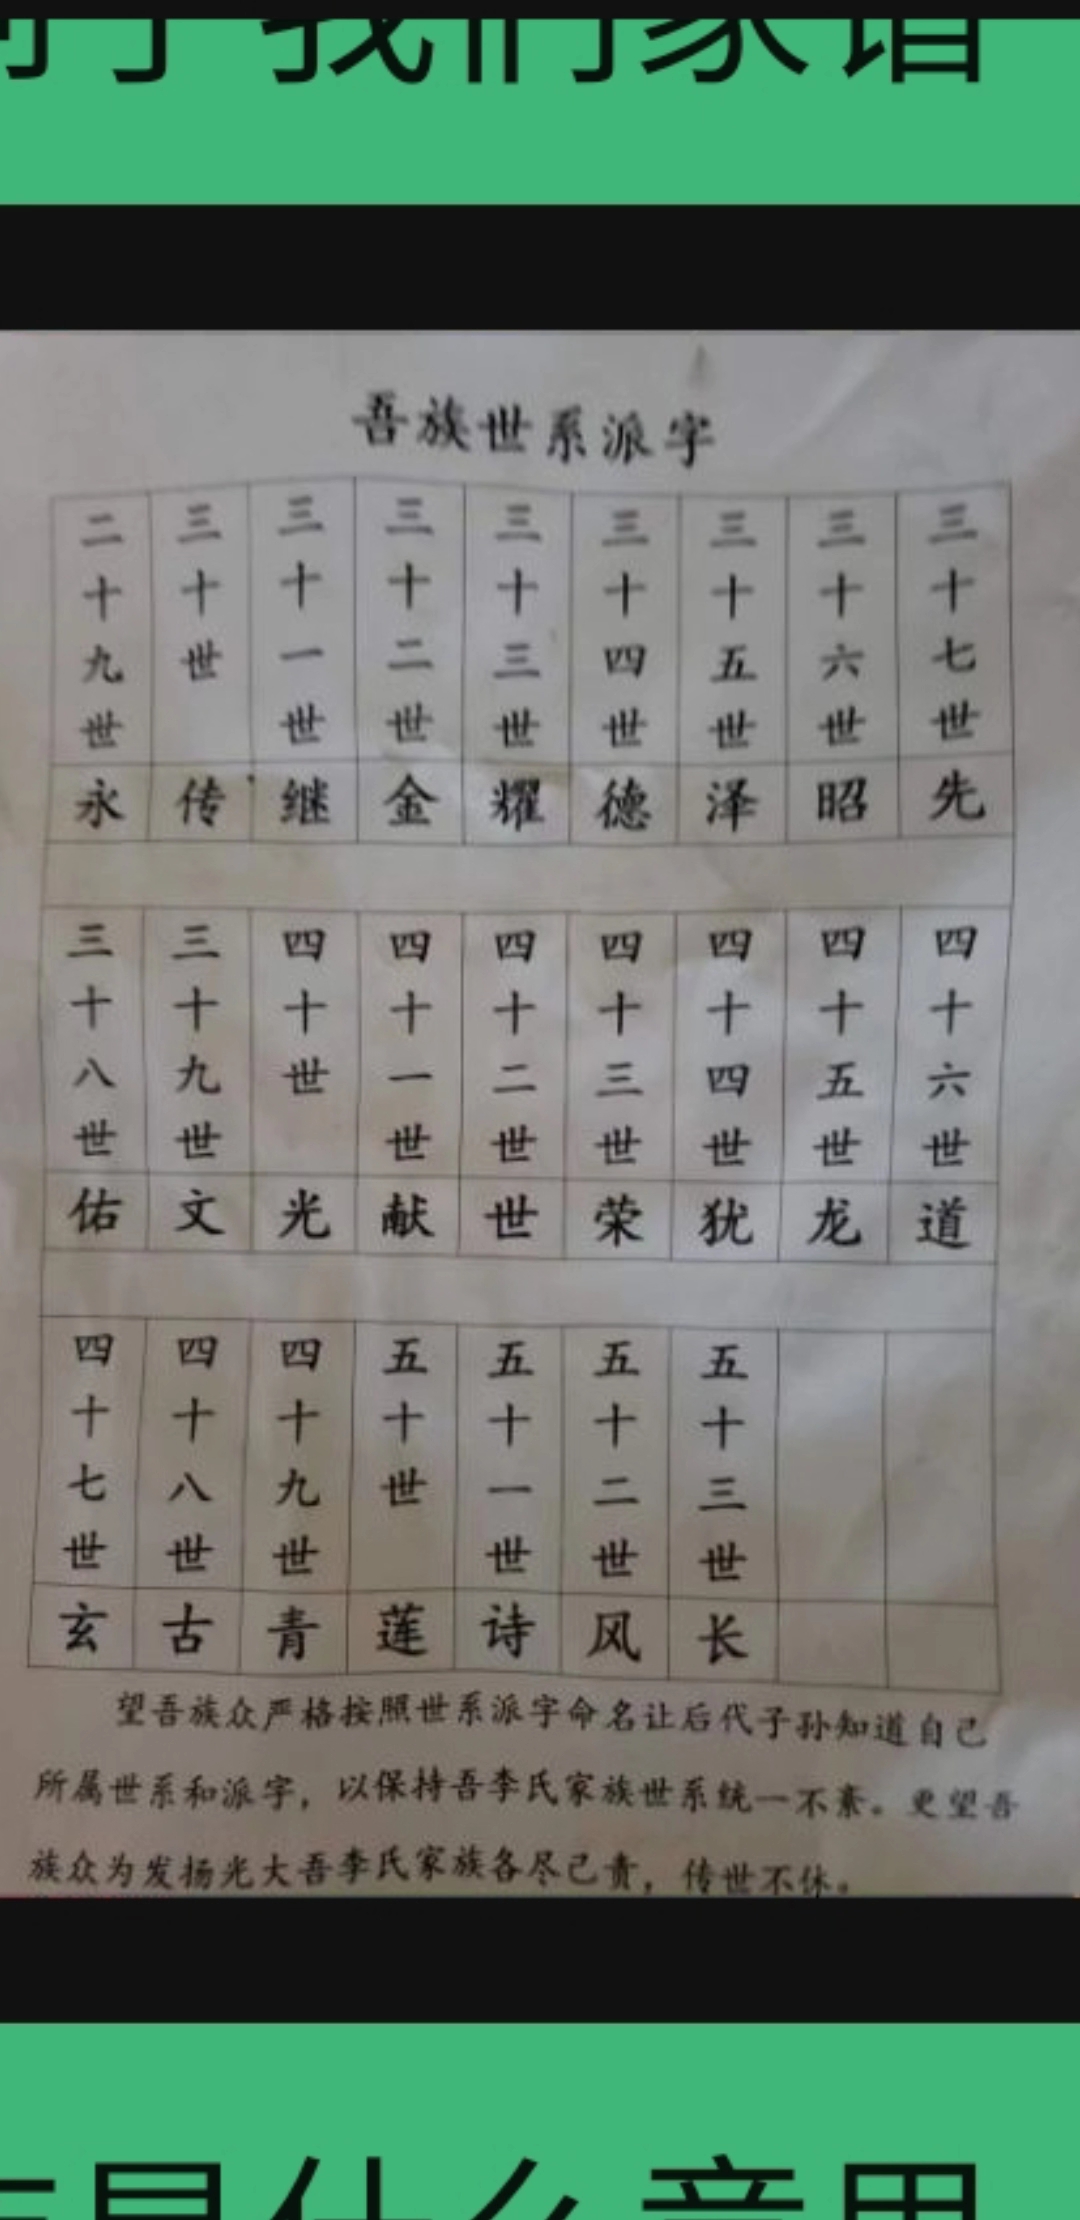 我们家谱
吾族世系派字
二十九世 三十世 三十一世 三十二世 三十三世 三十四世 三十五世 三十六世 三十七世
永 传 继 金 耀 德 泽 昭 先
三十八世 三十九世 四十世 四十一世 四十二世 四十三世 四十四世 四十五世 四十六世
佑 文 光 献 世 荣 犹 龙 道
四十七世 四十八世 四十九世 五十世 五十一世 五十二世 五十三世
玄 古 青 莲 诗 风 长
望吾族众严格按照世系派字命名让后代子孙知道自己
所属世系和派字，以保持吾李氏家族世系统一不紊。更望吾
族众为发扬光大吾李氏家族各尽己责，传世不休。
是什么意思